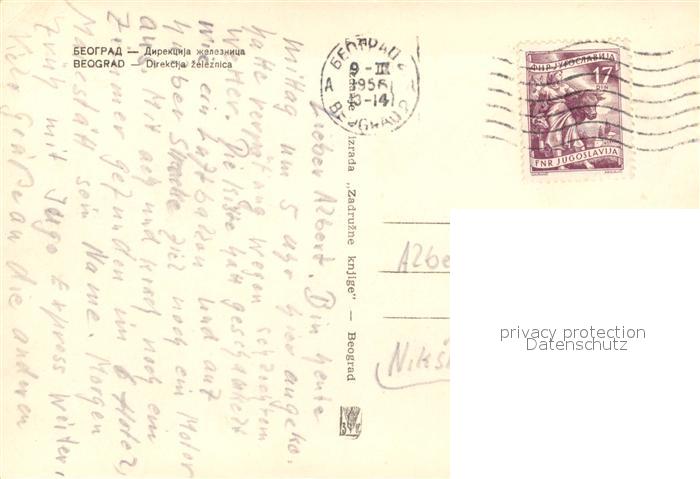 БЕОГРАД — Дирекција железница
BEOGRAD — Direkcija železnica
БЕОГРАД 2
9-III
1956
13-14
A
BEOGRAD 2
ФНР ЈУГОСЛАВИЈА
17
DIN
FNR JUGOSLAVIJA
izrada „Zadružne knjige" — Beograd
Lieber Albert. Bin heute
Mittag um 5 Uhr hier angeko.
hatte Verspätung wegen schlechtem
Wetter. Die Kiste hat geschaukelt
wie ein Luftballon und auf
halber Strecke fiel noch ein Motor
aus. Mit ach und krach noch ein
Zimmer gefunden im Hotel,
Majestät sein Name. Morgen
früh mit Jugo Express weiter,
Viele Grüße an die anderen
Albe
Nikš
privacy protection
Datenschutz